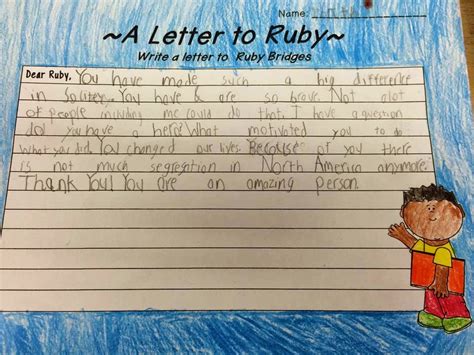 Name:
~A Letter to Ruby~
Write a letter to Ruby Bridges
Dear Ruby, You have made such a big difference
in Soiltey. You have & are so brave. Not alot
of people inluding me could do that. I have a question
do! you have a hero? What motivated you to do
What you did. You changed our lives. Because of you there
is not much segregtion in North America anymore.
Thank You! You are an amazing person.